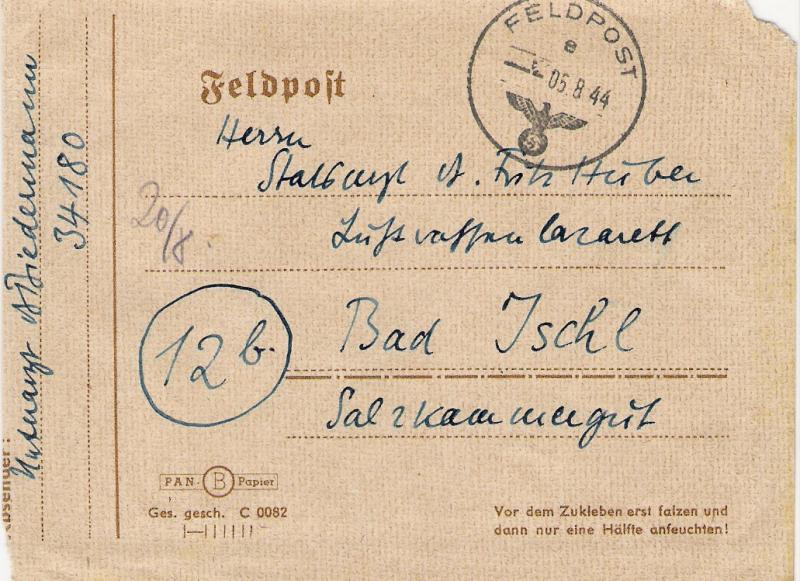 FELDPOST
e
05.8.44
Feldpost
Herrn
Stabsarzt Dr. Fritz Huber
Luftwaffenlazarett
20/8.
12b.
Bad Ischl
Salzkammergut
PAN B Papier
Ges. gesch. C 0082
Vor dem Zukleben erst falzen und
dann nur eine Hälfte anfeuchten!
Absender:
Biedermann
34180